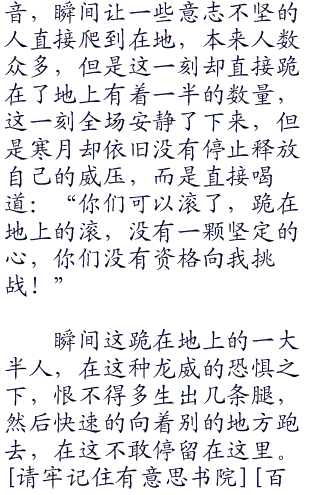 音，瞬间让一些意志不坚的
人直接爬到在地，本来人数
众多，但是这一刻却直接跪
在了地上有着一半的数量，
这一刻全场安静了下来，但
是寒月却依旧没有停止释放
自己的威压，而是直接喝
道：“你们可以滚了，跪在
地上的滚，没有一颗坚定的
心，你们没有资格向我挑
战！”
瞬间这跪在地上的一大
半人，在这种龙威的恐惧之
下，恨不得多生出几条腿，
然后快速的向着别的地方跑
去，在这不敢停留在这里。
[请牢记住有意思书院][百